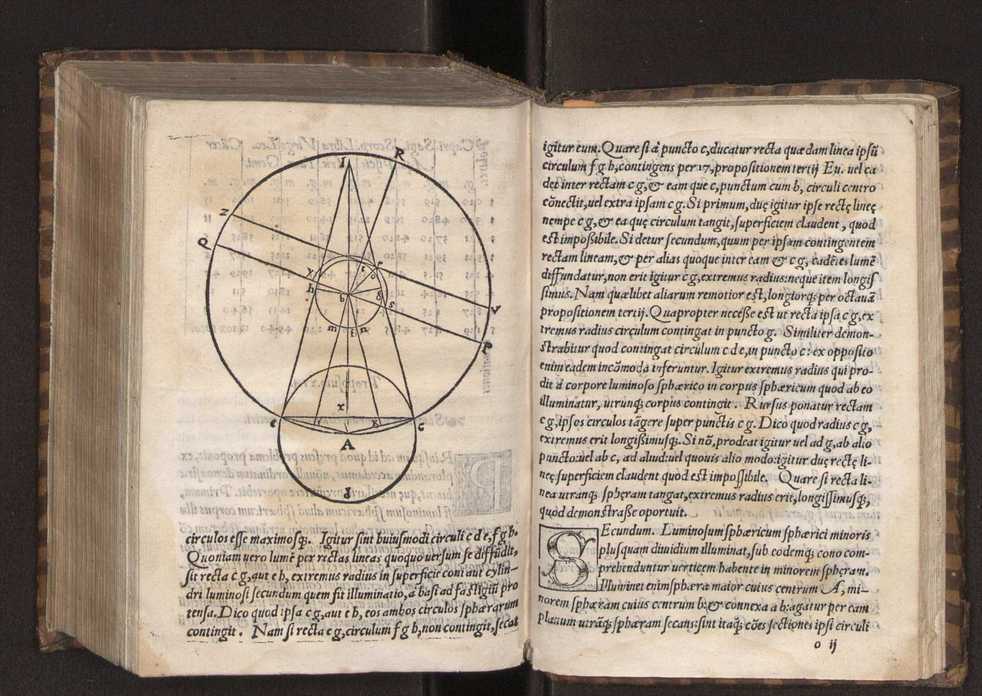 circulos esse maximosq;. Igitur sint huiusmodi circuli c d e, f g h.
Quoniam vero lumē per rectas lineas quoquo versum se diffūdit,
sit recta c g, aut e h, extremus radius in superficie coni aut cylin-
dri luminosi secundum quem fit illuminatio, a basi ad fastigiū pro
tensa. Dico quod ipsa c g, aut e h, eos ambos circulos sphærarum
contingit. Nam si recta c g, circulum f g h, non contingit, secat
igitur eum. Quare si à puncto c, ducatur recta quædam linea ipsū
circulum f g h, contingens per 17, propositionem tertij Eu. vel ca
det inter rectam c g, & eam que c, punctum cum b, circuli centro
cōnectit, vel extra ipsam c g. Si primum, duę igitur ipse rectę lineę
nempe c g, & ea quę circulum tangit, superficiem claudent, quod
est impossibile. Si detur secundum, quum per ipsam contingentem
rectam lineam, & per alias quoque inter eam & c g, eadē es lumē
diffundatur, non erit igitur c g, extremus radius: neque item longis
simus. Nam quælibet aliarum remotior est, longiorq; per octauā
propositionem tertij. Quapropter necesse est ut recta ipsa c g, ex
tremus radius circulum contingat in puncto g. Similiter demon-
strabitur quod contingat circulum c d e, in puncto c: ex opposito
enim eadem incōmoda inferuntur. Igitur extremus radius qui pro-
dit à corpore luminoso sphærico in corpus sphæricum quod ab eo
illuminatur, utrunq; corpus contingit. Rursus ponatur rectam
c g, ipsos circulos tāgere super punctis c g. Dico quod radius c g,
extremus erit longissimusq;. Si nō, prodeat igitur vel ad g, ab alio
puncto: vel ab c, ad aliud: vel quouis alio modo: igitur duę rectę li-
neę superficiem claudent quod est impossibile. Quare si recta li-
nea utranq; sphęram tangat, extremus radius erit, longissimusq;,
quod demonstrasse oportuit.
SEcundum. Luminosum sphæricum sphærici minoris
plusquam dimidium illuminat, sub eodemq; cono com-
prehenduntur verticem habente in minorem sphęram.
Illuminet enim sphæra maior cuius centrum A, mi-
norem sphæram cuius centrum b: & connexa a b: agatur per eam
planum utrāq; sphæram secans: sint itaq; cōes sectiones ipsi circuli
o ij
I
R
Z
Q
V
P
y
h
b
s
m
t
n
x
e
c
A
d